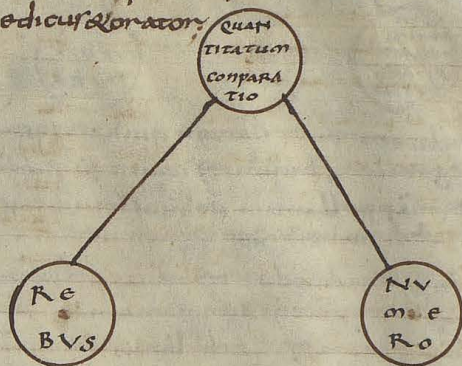 edicus & orator
QUAN
TITATUM
CONPARA
TIO
RE
BVS
NV
ME
RO